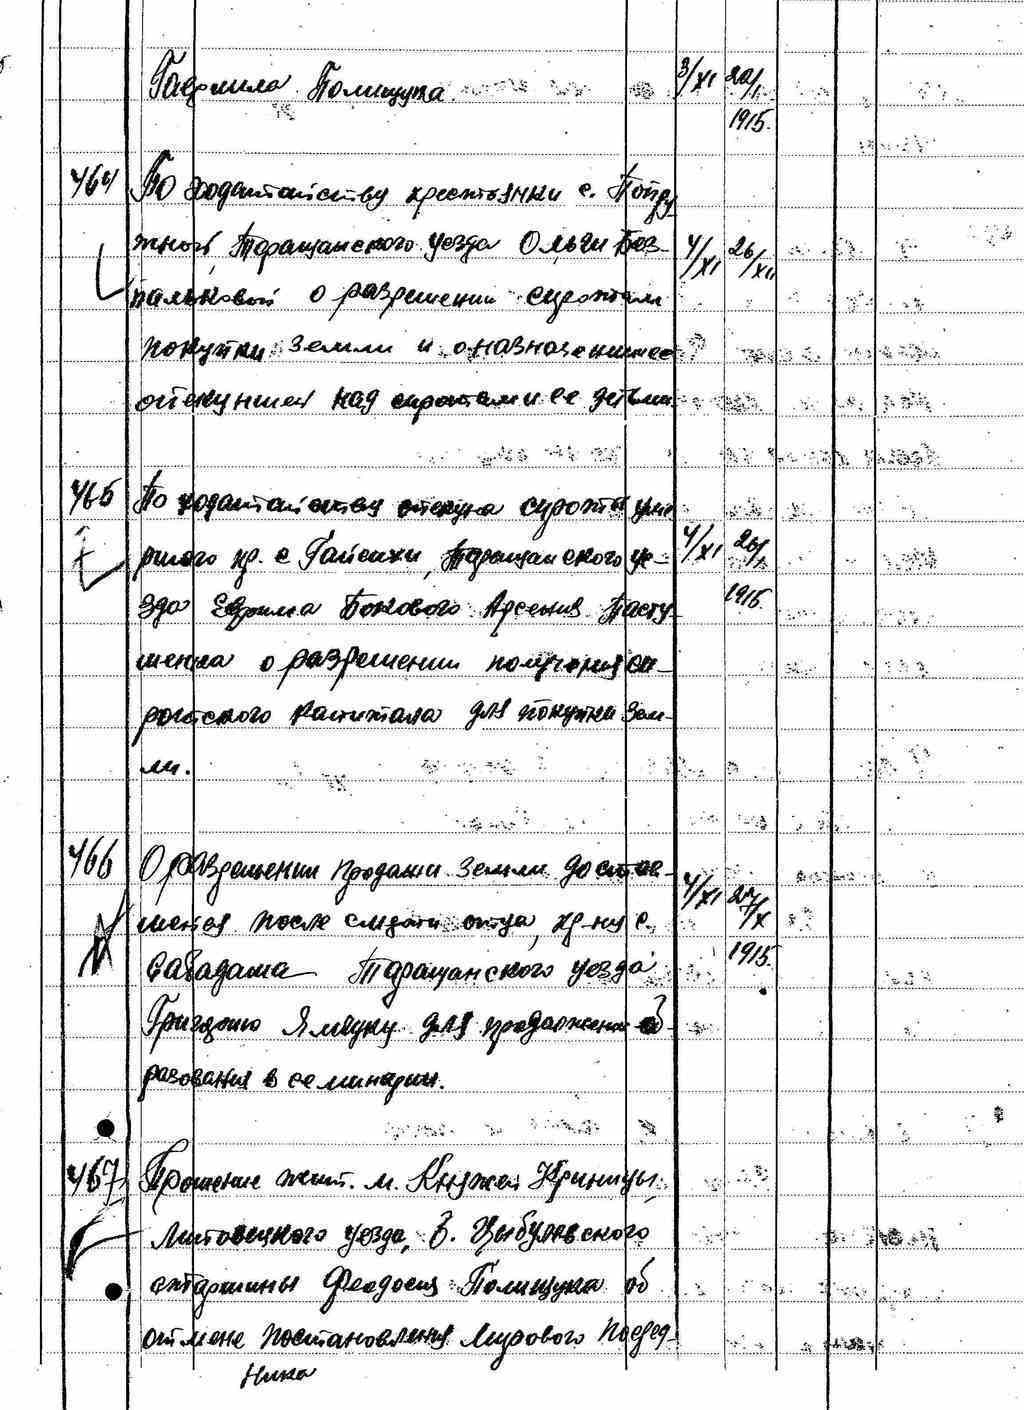 Гаврила Полищука. 3/XI 20/I
1915.
464 По ходатайству крестьянки с. Попру
жной, Таращанского уезда Ольги Без- 4/XI 26/XII
пальковой о разрешении сиротам
покупки земли и о назначении ее
опекуншей над сиротами ее детьми.
465 По ходатайству опекуна сироты уме
ршого кр. с. Гайсихи, Таращанского уе- 4/XI 26/I
зда Ефрима Бокового Арсения Пасту- 1915.
шенка о разрешении получения си-
ротского капитала для покупки зем-
ли.
466 О разрешении продажи земли достав-
шейся после смерти отца, кр-ну с. 4/XI 27/X
Сабадаша Таращанского уезда 1915.
Григорию Ямкуну для продолжения об-
разования в семинарии.
467 Прошение жит. м. Княжей Криницы,
Липовецкого уезда, б. Цыбулевского
старшины Феодосия Полищука об
отмене постановления Мирового Посред-
ника